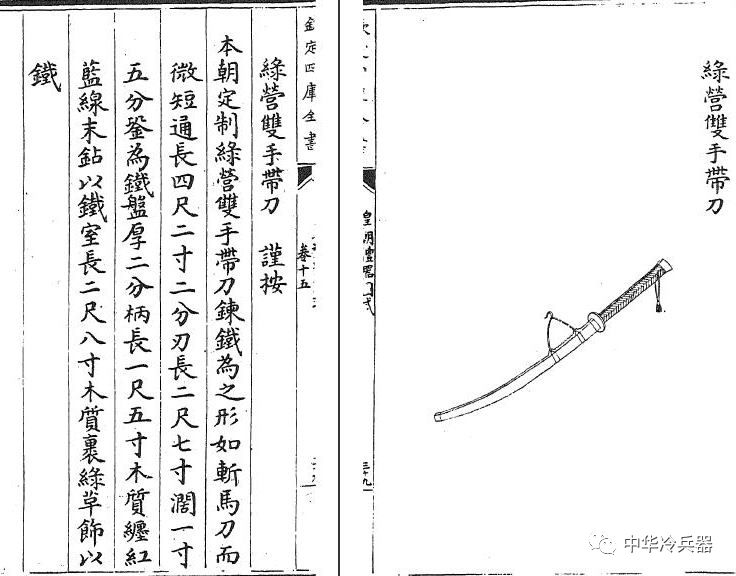 綠營雙手帶刀
皇朝禮器圖式
三十九
欽定四庫全書
卷十五
綠營雙手帶刀 謹按
本朝定制綠營雙手帶刀鍊鐵為之形如斬馬刀而
微短通長四尺二寸二分刃長二尺七寸濶一寸
五分銎為鐵盤厚二分柄長一尺五寸木質纏紅
藍線末鉆以鐵室長二尺八寸木質裹綠草飾以
鐵
中华冷兵器